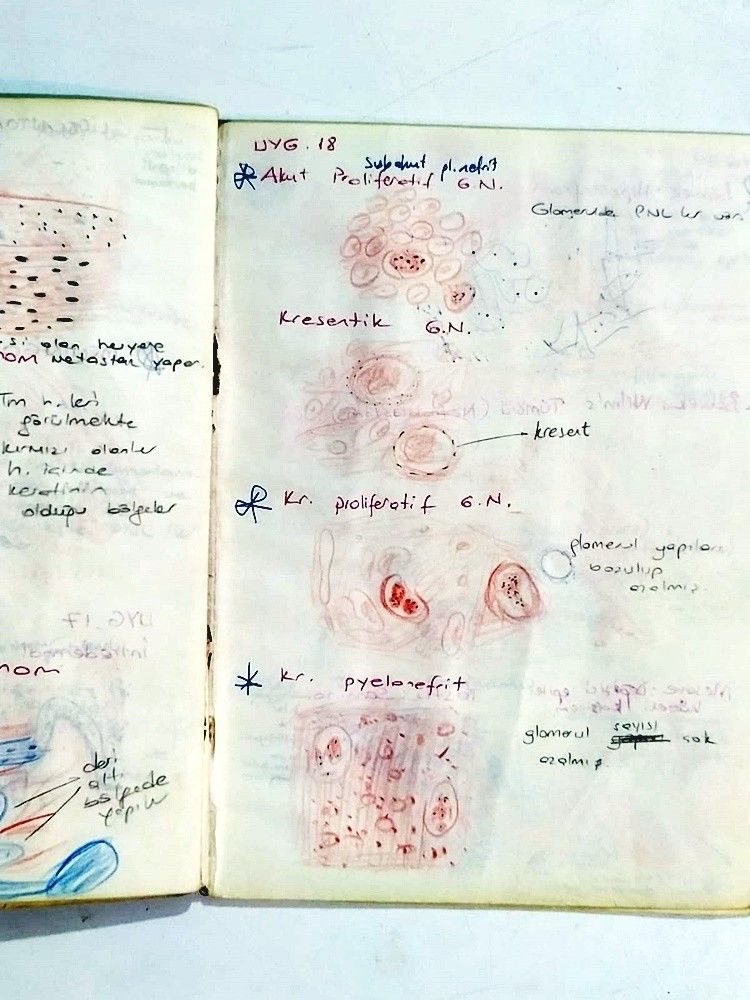 si olan heryere
nom metastaz yapar.
Tm h. leri
görülmekte
kırmızı olanlar
h. içinde
keratinin
olduğu bölgeler
nom
deri
altı
bölgede
yapılı
UYG. 18
subakut pl. nefrit
Akut Proliferatif G.N.
Glomerulde PNL ler var.
Kresentik G.N.
kresent
Kr. proliferatif G.N.
glomerul yapıları
bozulup
azalmış.
Kr. pyelonefrit
glomerul sayısı çok
azalmış.